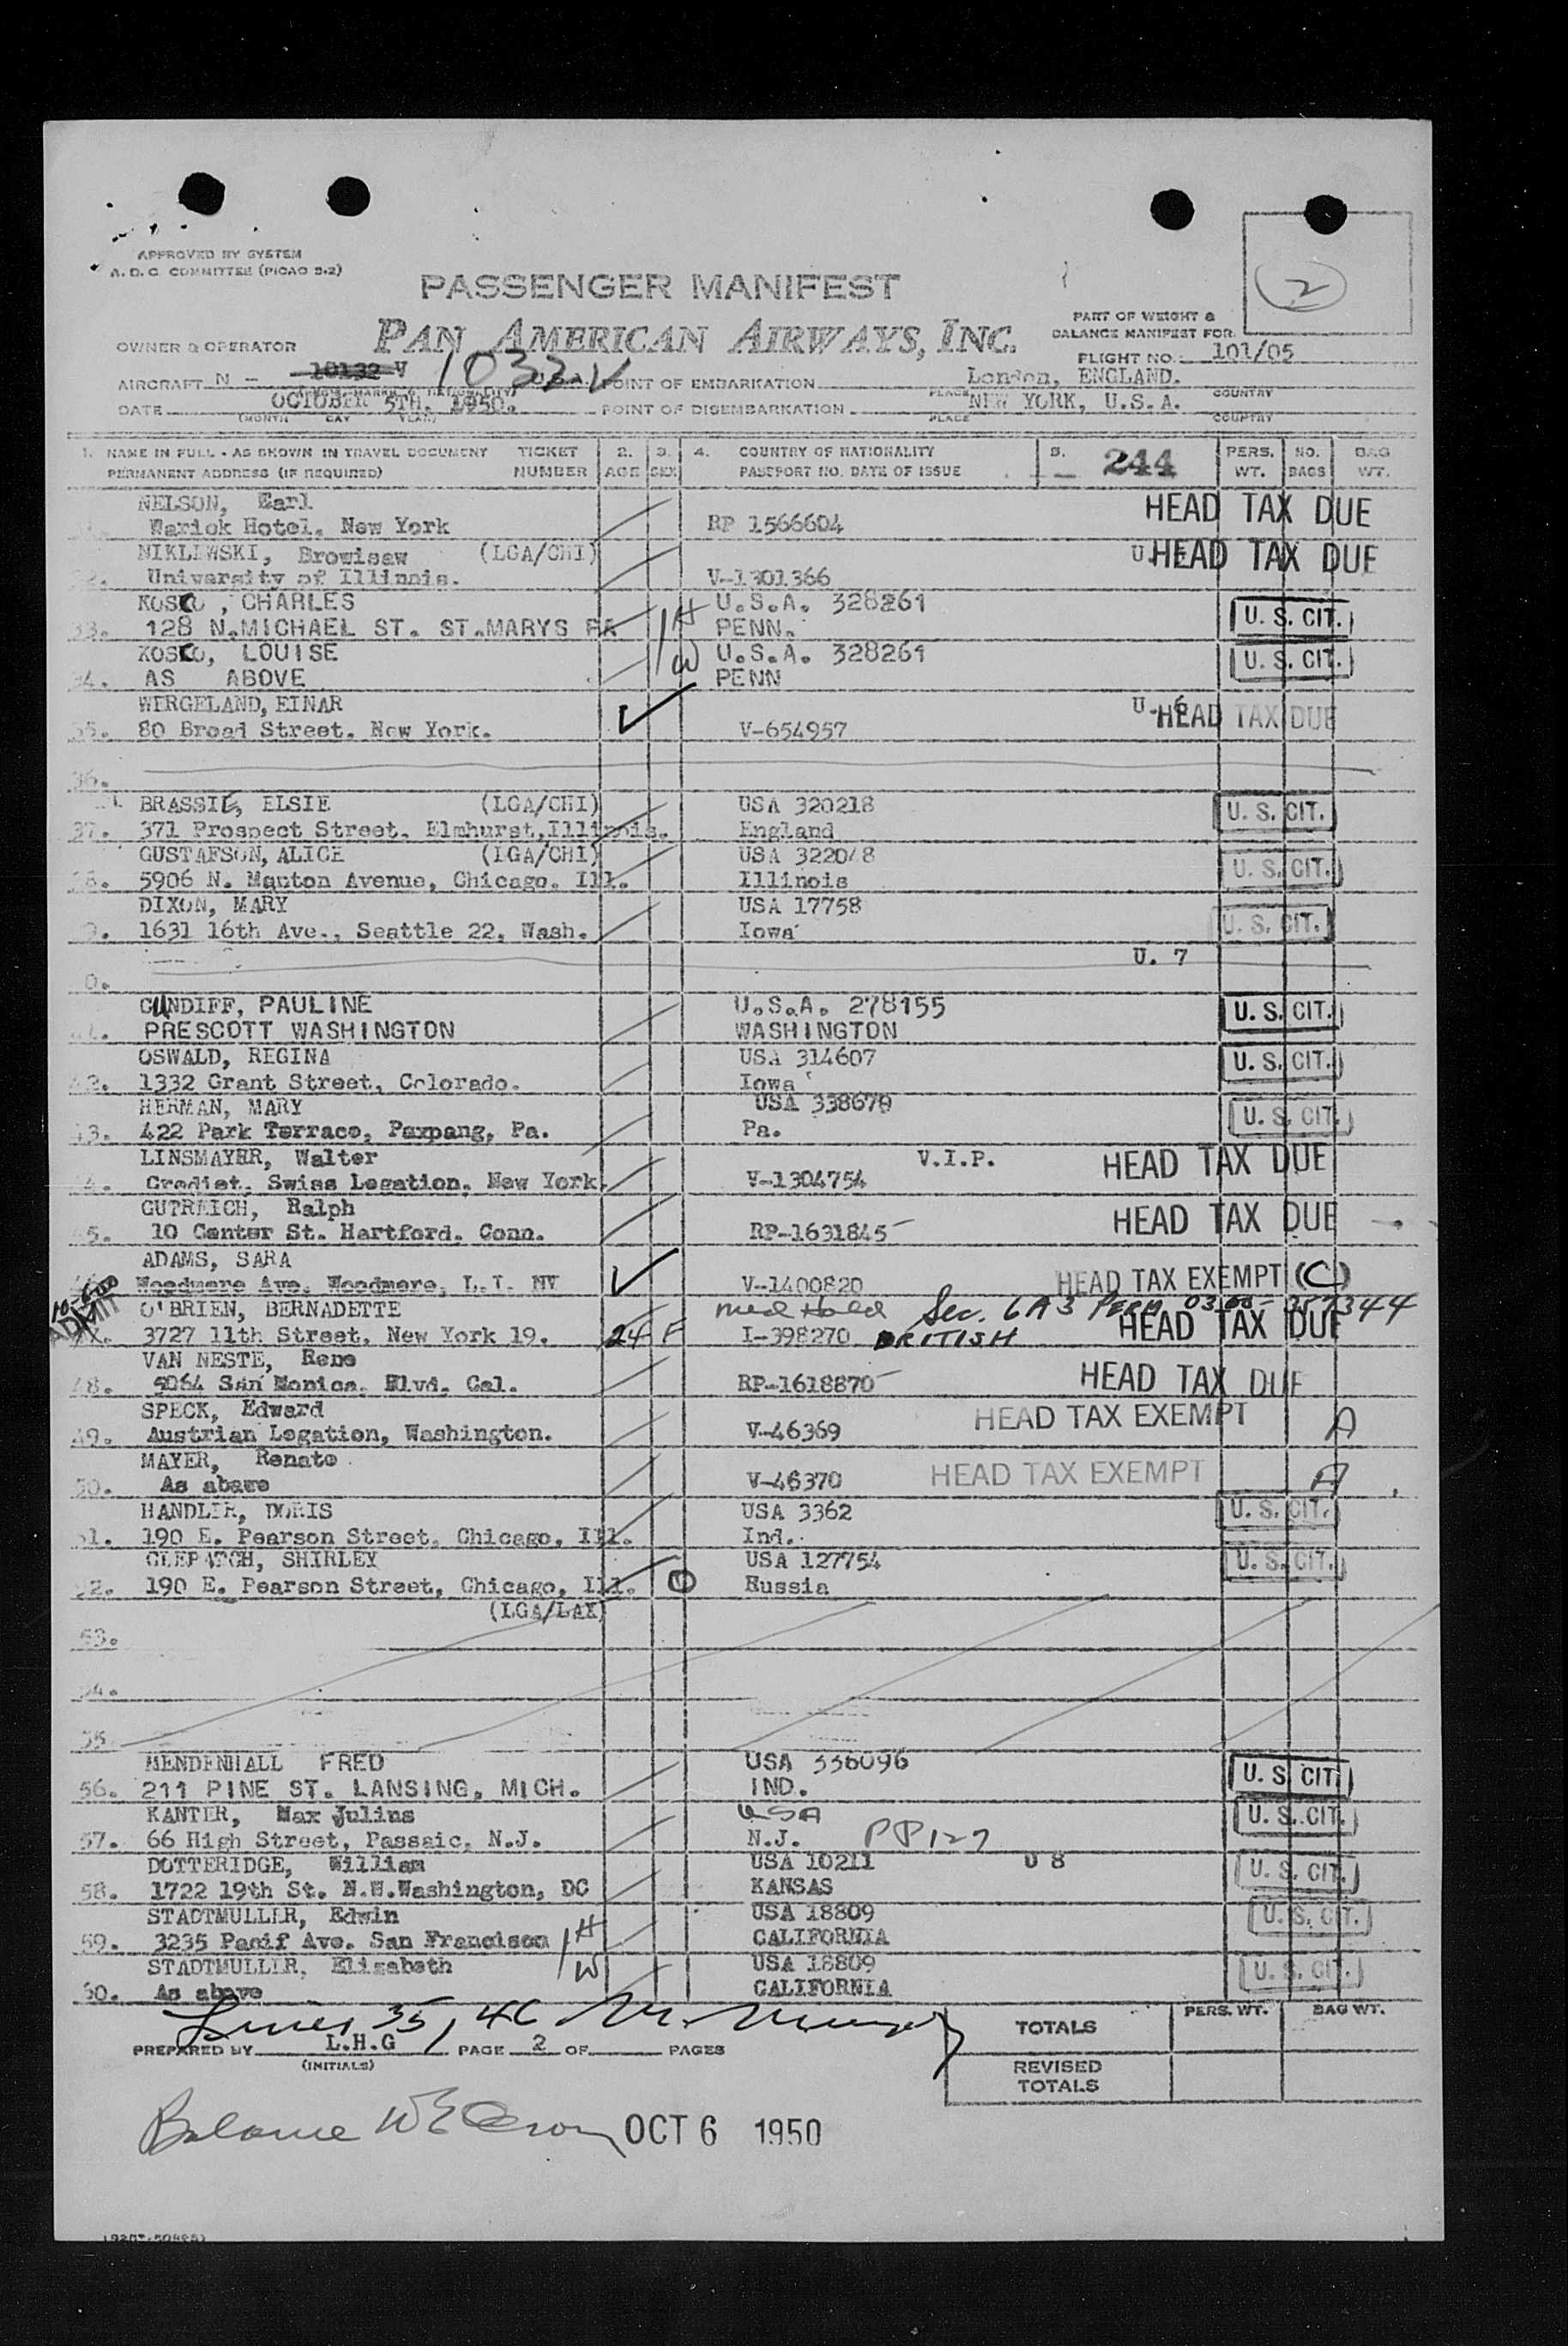 APPROVED BY SYSTEM
A. D. C. COMMITTEE (PICAO 9.2)
2
PASSENGER MANIFEST
PAN AMERICAN AIRWAYS, INC.
PART OF WEIGHT &
BALANCE MANIFEST FOR
OWNER & OPERATOR
FLIGHT NO. 101/05
AIRCRAFT N - 10132 V 1032 V POINT OF EMBARKATION London, ENGLAND.
PLACE COUNTRY
DATE OCTOBER 5TH, 1950. POINT OF DISEMBARKATION NEW YORK, U.S.A.
(MONTH DAY YEAR) PLACE COUNTRY
1. NAME IN FULL - AS SHOWN IN TRAVEL DOCUMENT TICKET 2. 3. 4. COUNTRY OF NATIONALITY 5. 244 PERS. NO. BAG
PERMANENT ADDRESS (IF REQUIRED) NUMBER AGE SEX PASSPORT NO. DATE OF ISSUE WT. BAGS WT.
NELSON, Earl HEAD TAX DUE
Warick Hotel, New York RP 1566604
NIKLEWSKI, Browisaw (LGA/CHI) HEAD TAX DUE
University of Illinois. V-1301366
KOSCO, CHARLES 1H U.S.A. 328261 U. S. CIT.
33. 128 N.MICHAEL ST. ST.MARYS PA PENN.
KOSCO, LOUISE 1W U.S.A. 328261 U. S. CIT.
34. AS ABOVE PENN
WERGELAND, EINAR U. 6 HEAD TAX DUE
35. 80 Broad Street. New York. V-654957
36.
BRASSIE, ELSIE (LGA/CHI) USA 320218 U. S. CIT.
37. 371 Prospect Street, Elmhurst, Illinois. England
GUSTAFSON, ALICE (LGA/CHI) USA 322048 U. S. CIT.
38. 5906 N. Manton Avenue, Chicago. Ill. Illinois
DIXON, MARY USA 17758 U. S. CIT.
9. 1631 16th Ave., Seattle 22, Wash. Iowa
U. 7
0.
CUNDIFF, PAULINE U.S.A. 278155 U. S. CIT.
41. PRESCOTT WASHINGTON WASHINGTON
OSWALD, REGINA USA 314607 U. S. CIT.
42. 1332 Grant Street, Colorado. Iowa
HERMAN, MARY USA 338670 U. S. CIT.
43. 422 Park Terrace, Paxpang, Pa. Pa.
LINSMAYER, Walter V.I.P. HEAD TAX DUE
44. Crediet. Swiss Legation. New York. V-1304754
GUTREICH, Ralph HEAD TAX DUE
45. 10 Center St. Hartford. Conn. RP-1631845
ADAMS, SARA HEAD TAX EXEMPT (C)
Woodmere Ave. Woodmere, L.I. NY V-1400820
10-6-50 ADMIT
O'BRIEN, BERNADETTE Med Hold Sec. 6A3 PERM 0300-357344
3727 11th Street, New York 19. 24 F I-398270 BRITISH HEAD TAX DUE
VAN NESTE, Rene HEAD TAX DUE
48. 5064 San Monica. Blvd. Cal. RP-1618870
SPECK, Edward HEAD TAX EXEMPT A
49. Austrian Legation, Washington. V-46369
MAYER, Renato HEAD TAX EXEMPT A
50. As above V-46370
HANDLER, DORIS USA 3362 U. S. CIT.
51. 190 E. Pearson Street, Chicago, Ill. Ind.
CLEPATCH, SHIRLEY USA 127754 U. S. CIT.
52. 190 E. Pearson Street, Chicago, Ill. Russia
(LGA/LAX)
53.
54.
55.
MENDENHALL FRED USA 336096 U. S. CIT.
56. 211 PINE ST. LANSING, MICH. IND.
KANTER, Max Julius USA U. S. CIT.
57. 66 High Street, Passaic, N.J. N.J. PP127
DOTTERIDGE, William USA 10211 U 8 U. S. CIT.
58. 1722 19th St. N.W.Washington, DC KANSAS
STADTMULLER, Edwin 1H USA 18809 U. S. CIT.
59. 3235 Pacif Ave. San Francisco CALIFORNIA
STADTMULLER, Elizabeth 1W USA 18809 U. S. CIT.
60. As above CALIFORNIA
Lines 35, 46
PREPARED BY L.H.G PAGE 2 OF PAGES
(INITIALS)
TOTALS PERS. WT. BAG WT.
REVISED
TOTALS
Balance
OCT 6 1950